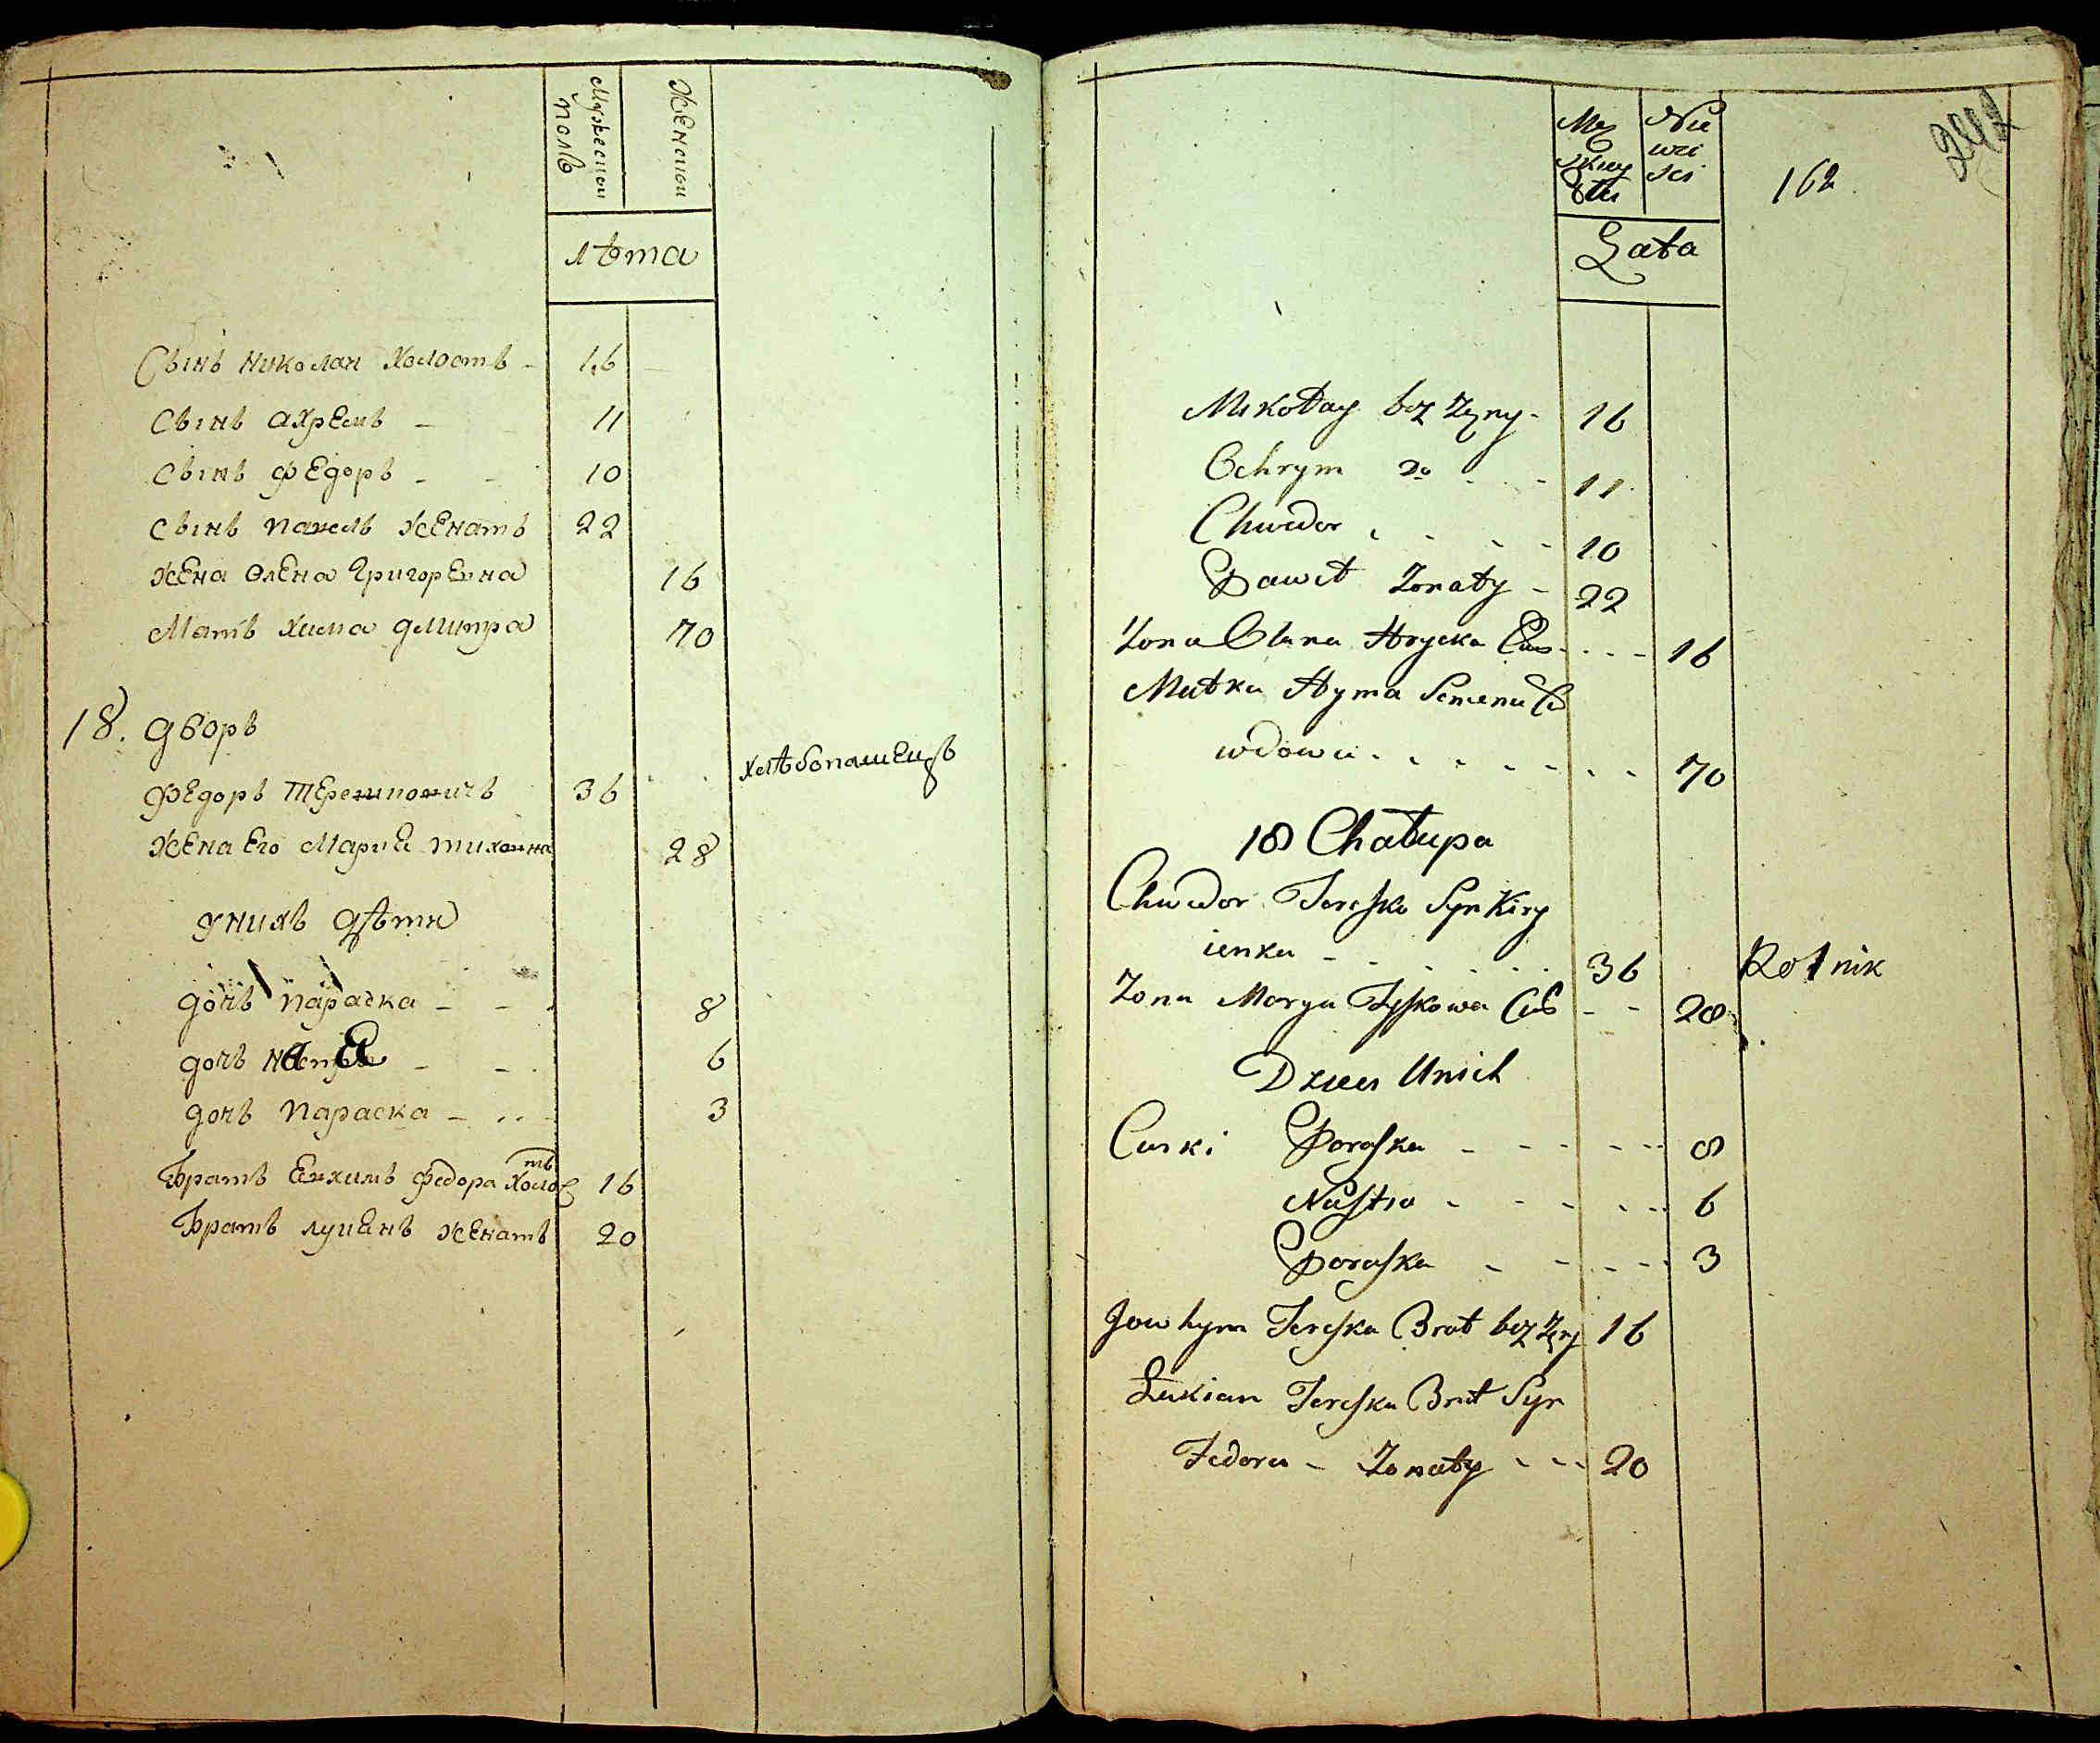 Мужескои
полъ
Женскои
лѣта
Сынъ николаи Холостъ - 16
Сынъ ахремъ - 11
Сынъ федоръ - - 10
Сынъ павелъ женатъ 22
жена олена григоревна 16
Мать хима дмитра 70
18. дворъ
федоръ терешковичъ 36 хлѣбопашецъ
жена его Мариа тиховна 28
унихъ дѣти
дочь параска - - 8
дочь настя - - 6
дочь параска - 3
братъ евхимъ федора холостъ 16
братъ луцанъ женатъ 20
242
Mę
zkey
Płci
Nie
wie
sci
162
Lata
Mikołay bez żęny - 16
Ochrym do - 11
Chwedor - - - 10
Paweł żonaty - 22
żona Olena Hrycka Cur - - - 16
Matka Hyma Semena C
wdowa - - - - - - 70
18 Chałupa
Chwedor Tereszko Syn Kiry
ienka - - - - 36 Rolnik
Zona Marya Tyszkowa Cur - - 28
Dzieci Unich
Curki Poraska - - - - 8
Nastia - - - - 6
Poraska - - - - 3
Jowhym Tereszka Brat bez żęny 16
Łukian Tereszka Brat Syn
Fedora - Zonaty - - - 20